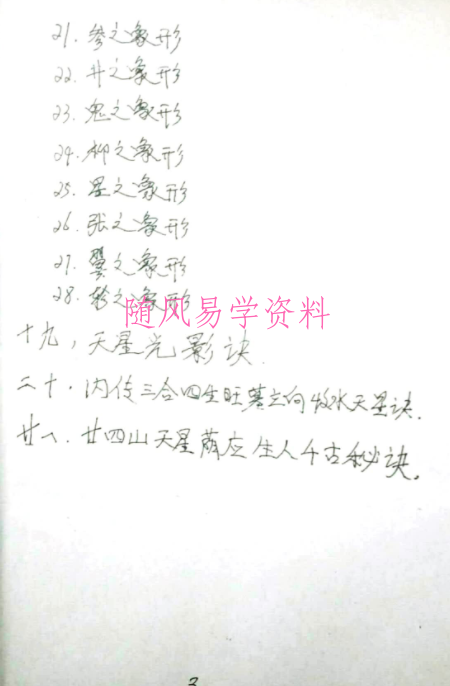 21. 参之象形
22. 井之象形
23. 鬼之象形
24. 柳之象形
25. 星之象形
26. 张之象形
27. 翼之象形
28. 轸之象形
随风易学资料
十九,天星光影诀.
二十,内传三合四生旺墓立向收水天星诀.
廿一.廿四山天星荫应生人千古秘诀.
3